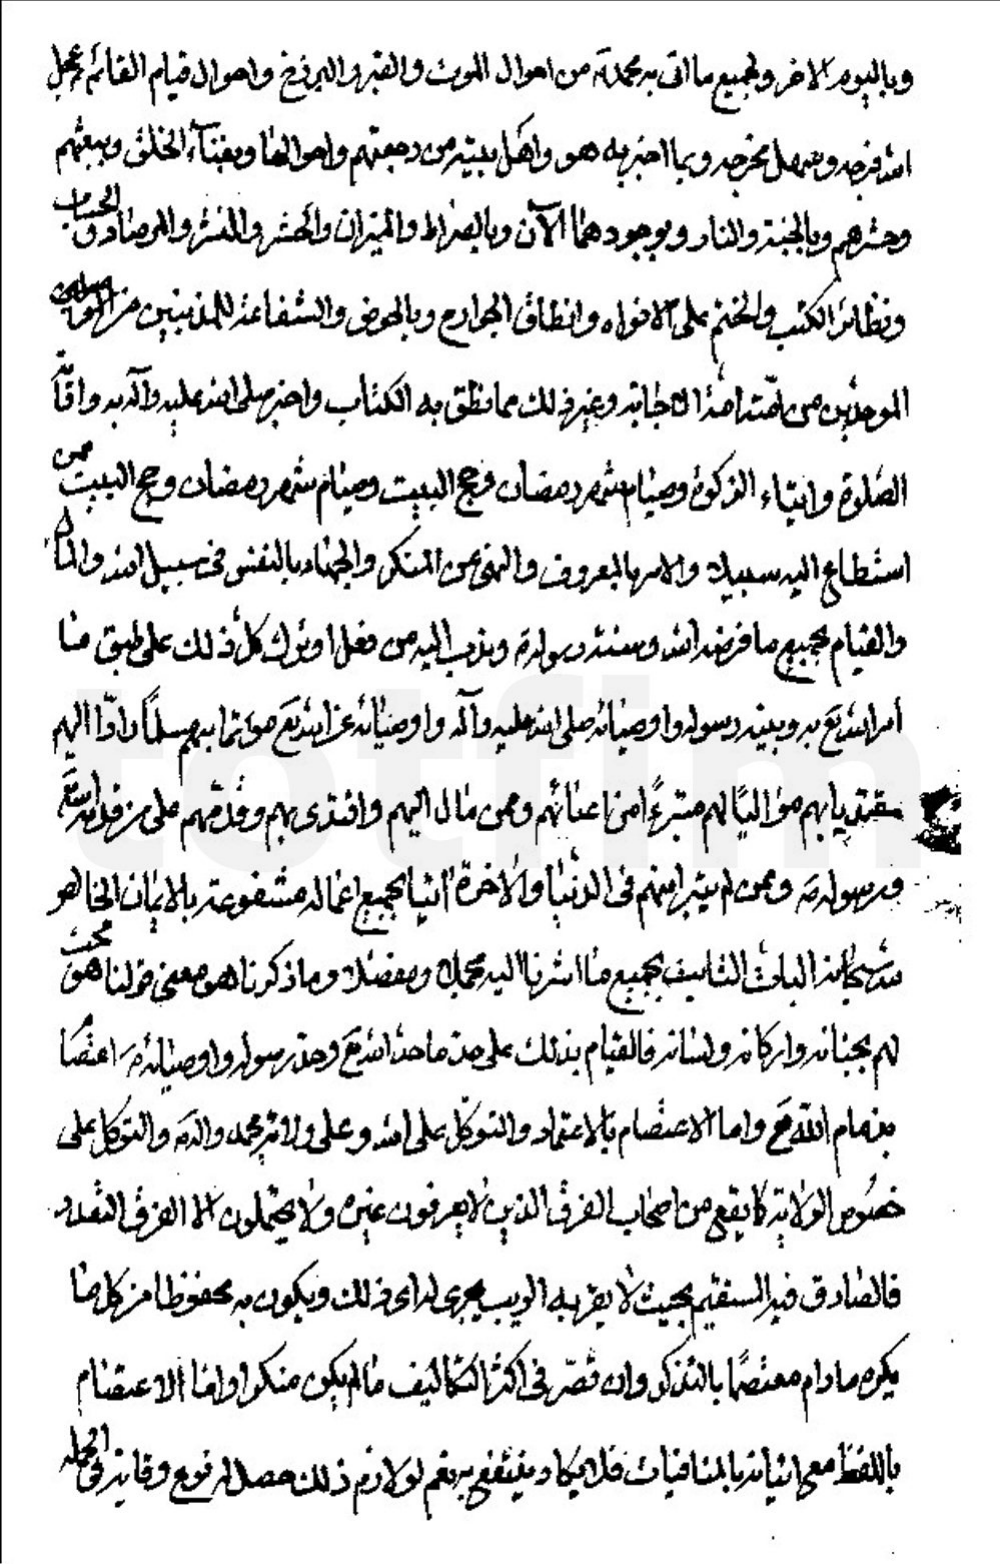 وباليوم الاخر وبجميع ما اتى به محمد ص من احوال الموت والقبر والبرزخ واحوال قيام القائم عجل
الله فرجه وسهل مخرجه وبما اخبر به هو واهل بيته من رجعتهم واحوالها وبفناء الخلق وبعثهم
وحشرهم وبالجنة والنار وبوجودهما الآن وبالصراط والميزان والحشر والنشر والمرصاد والحساب
وتطائر الكتب والختم على الافواه وانطاق الجوارح وبالحوض والشفاعة للمذنبين من
الموحدين من امته وغير ذلك مما نطق به الكتاب واخبر صلى الله عليه وآله به واقام
الصلوة وايتاء الزكوة وصيام شهر رمضان وحج البيت وصيام شهر رمضان وحج البيت من
استطاع اليه سبيلا والامر بالمعروف والنهي عن المنكر والجهاد بالنفس في سبيل الله والمال
والقيام بجميع ما فرضه الله وسنته رسوله ص وندب اليه من فعل او ترك كل ذلك على طبق ما
امر الله تع به وبينه رسوله واوصيائه صلى الله عليه وآله واوصيائه عن الله تع مؤتما بهم مسلما رادا اليهم
مقتديا بهم مواليا لهم متبرءا من اعدائهم وممن مال اليهم واقتدى بهم وقدمهم على من قدمه الله تع
ورسوله ص وممن لم يتبرا منهم في الدنيا والاخرة اتيا بجميع اعماله مشفوعة بالايمان الخ هو
الباعث بجميع ما اشرنا اليه مجملا ومفصلا وما ذكرنا هو معنى قولنا هو محب
لهم بجنانه واركانه ولسانه فالقيام بذلك على حد ما حد الله تع وحد رسوله واوصيائه اعتصام
بذمام الله تع واما الاعتصام بالاعتماد والتوكل على الله وعلى ولاية محمد واله ص والتوكل على
خصوص الولاية كما يقع من اصحاب الفرق الذين لا يعرفون غيره ولا يحتملون الا
فالصادق فيه المستقيم بحيث لا يعتريه الريب يجرى له اى ذلك ويكون به محفوظا من كل ما
يكره ما دام معتصما بالتذكر وان قصر في اكثر التكاليف ما لم يكن منكرا واما الاعتصام
باللفظ مع اتيانه بالمنافيات فلا يكاد ينتفع به نعم لو لازم ذلك حصل له نوع وقاية في الجملة
totfim